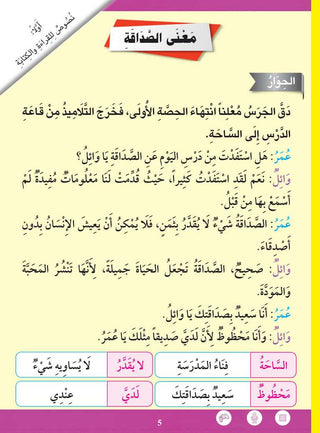 أَوَّلًا:
نُصُوصٌ لِلْقِرَاءَةِ وَالْكِتَابَةِ
مَعْنَى الصَّدَاقَةِ
الْحِوَارُ
دَقَّ الْجَرَسُ مُعْلِنًا انْتِهَاءَ الْحِصَّةِ الْأُولَى، فَخَرَجَ التَّلَامِيذُ مِنْ قَاعَةِ
الدَّرْسِ إِلَى السَّاحَةِ.
عُمَرُ: هَلِ اسْتَفَدْتَ مِنْ دَرْسِ الْيَوْمِ عَنِ الصَّدَاقَةِ يَا وَائِلُ؟
وَائِلٌ: نَعَمْ لَقَدِ اسْتَفَدْتُ كَثِيرًا، حَيْثُ قُدِّمَتْ لَنَا مَعْلُومَاتٌ مُفِيدَةٌ لَمْ
أَسْمَعْ بِهَا مِنْ قَبْلُ.
عُمَرُ: الصَّدَاقَةُ شَيْءٌ لَا يُقَدَّرُ بِثَمَنٍ، فَلَا يُمْكِنُ أَنْ يَعِيشَ الْإِنْسَانُ بِدُونِ
أَصْدِقَاءَ.
وَائِلٌ: صَحِيحٌ، الصَّدَاقَةُ تَجْعَلُ الْحَيَاةَ جَمِيلَةً، لِأَنَّهَا تَنْشُرُ الْمَحَبَّةَ
وَالْمَوَدَّةَ.
عُمَرُ: أَنَا سَعِيدٌ بِصَدَاقَتِكَ يَا وَائِلُ.
وَائِلٌ: وَأَنَا مَحْظُوظٌ لِأَنَّ لَدَيَّ صَدِيقًا مِثْلَكَ يَا عُمَرُ.
السَّاحَةُ فِنَاءُ الْمَدْرَسَةِ لَا يُقَدَّرُ لَا يُسَاوِيهِ شَيْءٌ
مَحْظُوظٌ سَعِيدٌ بِصَدَاقَتِكَ لَدَيَّ عِنْدِي
5